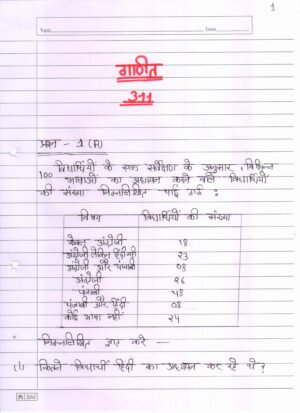 1
Topic
Date
गणित
311
प्रश्न - 1 (A)
100 विद्यार्थियों के एक सर्वेक्षण के अनुसार, विभिन्न
भाषाओं का अध्ययन करने वाले विद्यार्थियों
की संख्या निम्नलिखित पाई गई :
विषय विद्यार्थियों की संख्या
केवल अंग्रेजी 18
अंग्रेजी लेकिन हिंदी नहीं 23
अंग्रेजी और पंजाबी 08
अंग्रेजी 26
पंजाबी 48
पंजाबी और हिंदी 08
कोई भाषा नहीं 24
निम्नलिखित ज्ञात करे —
(i) कितने विद्यार्थी हिंदी का अध्ययन कर रहे थे ?